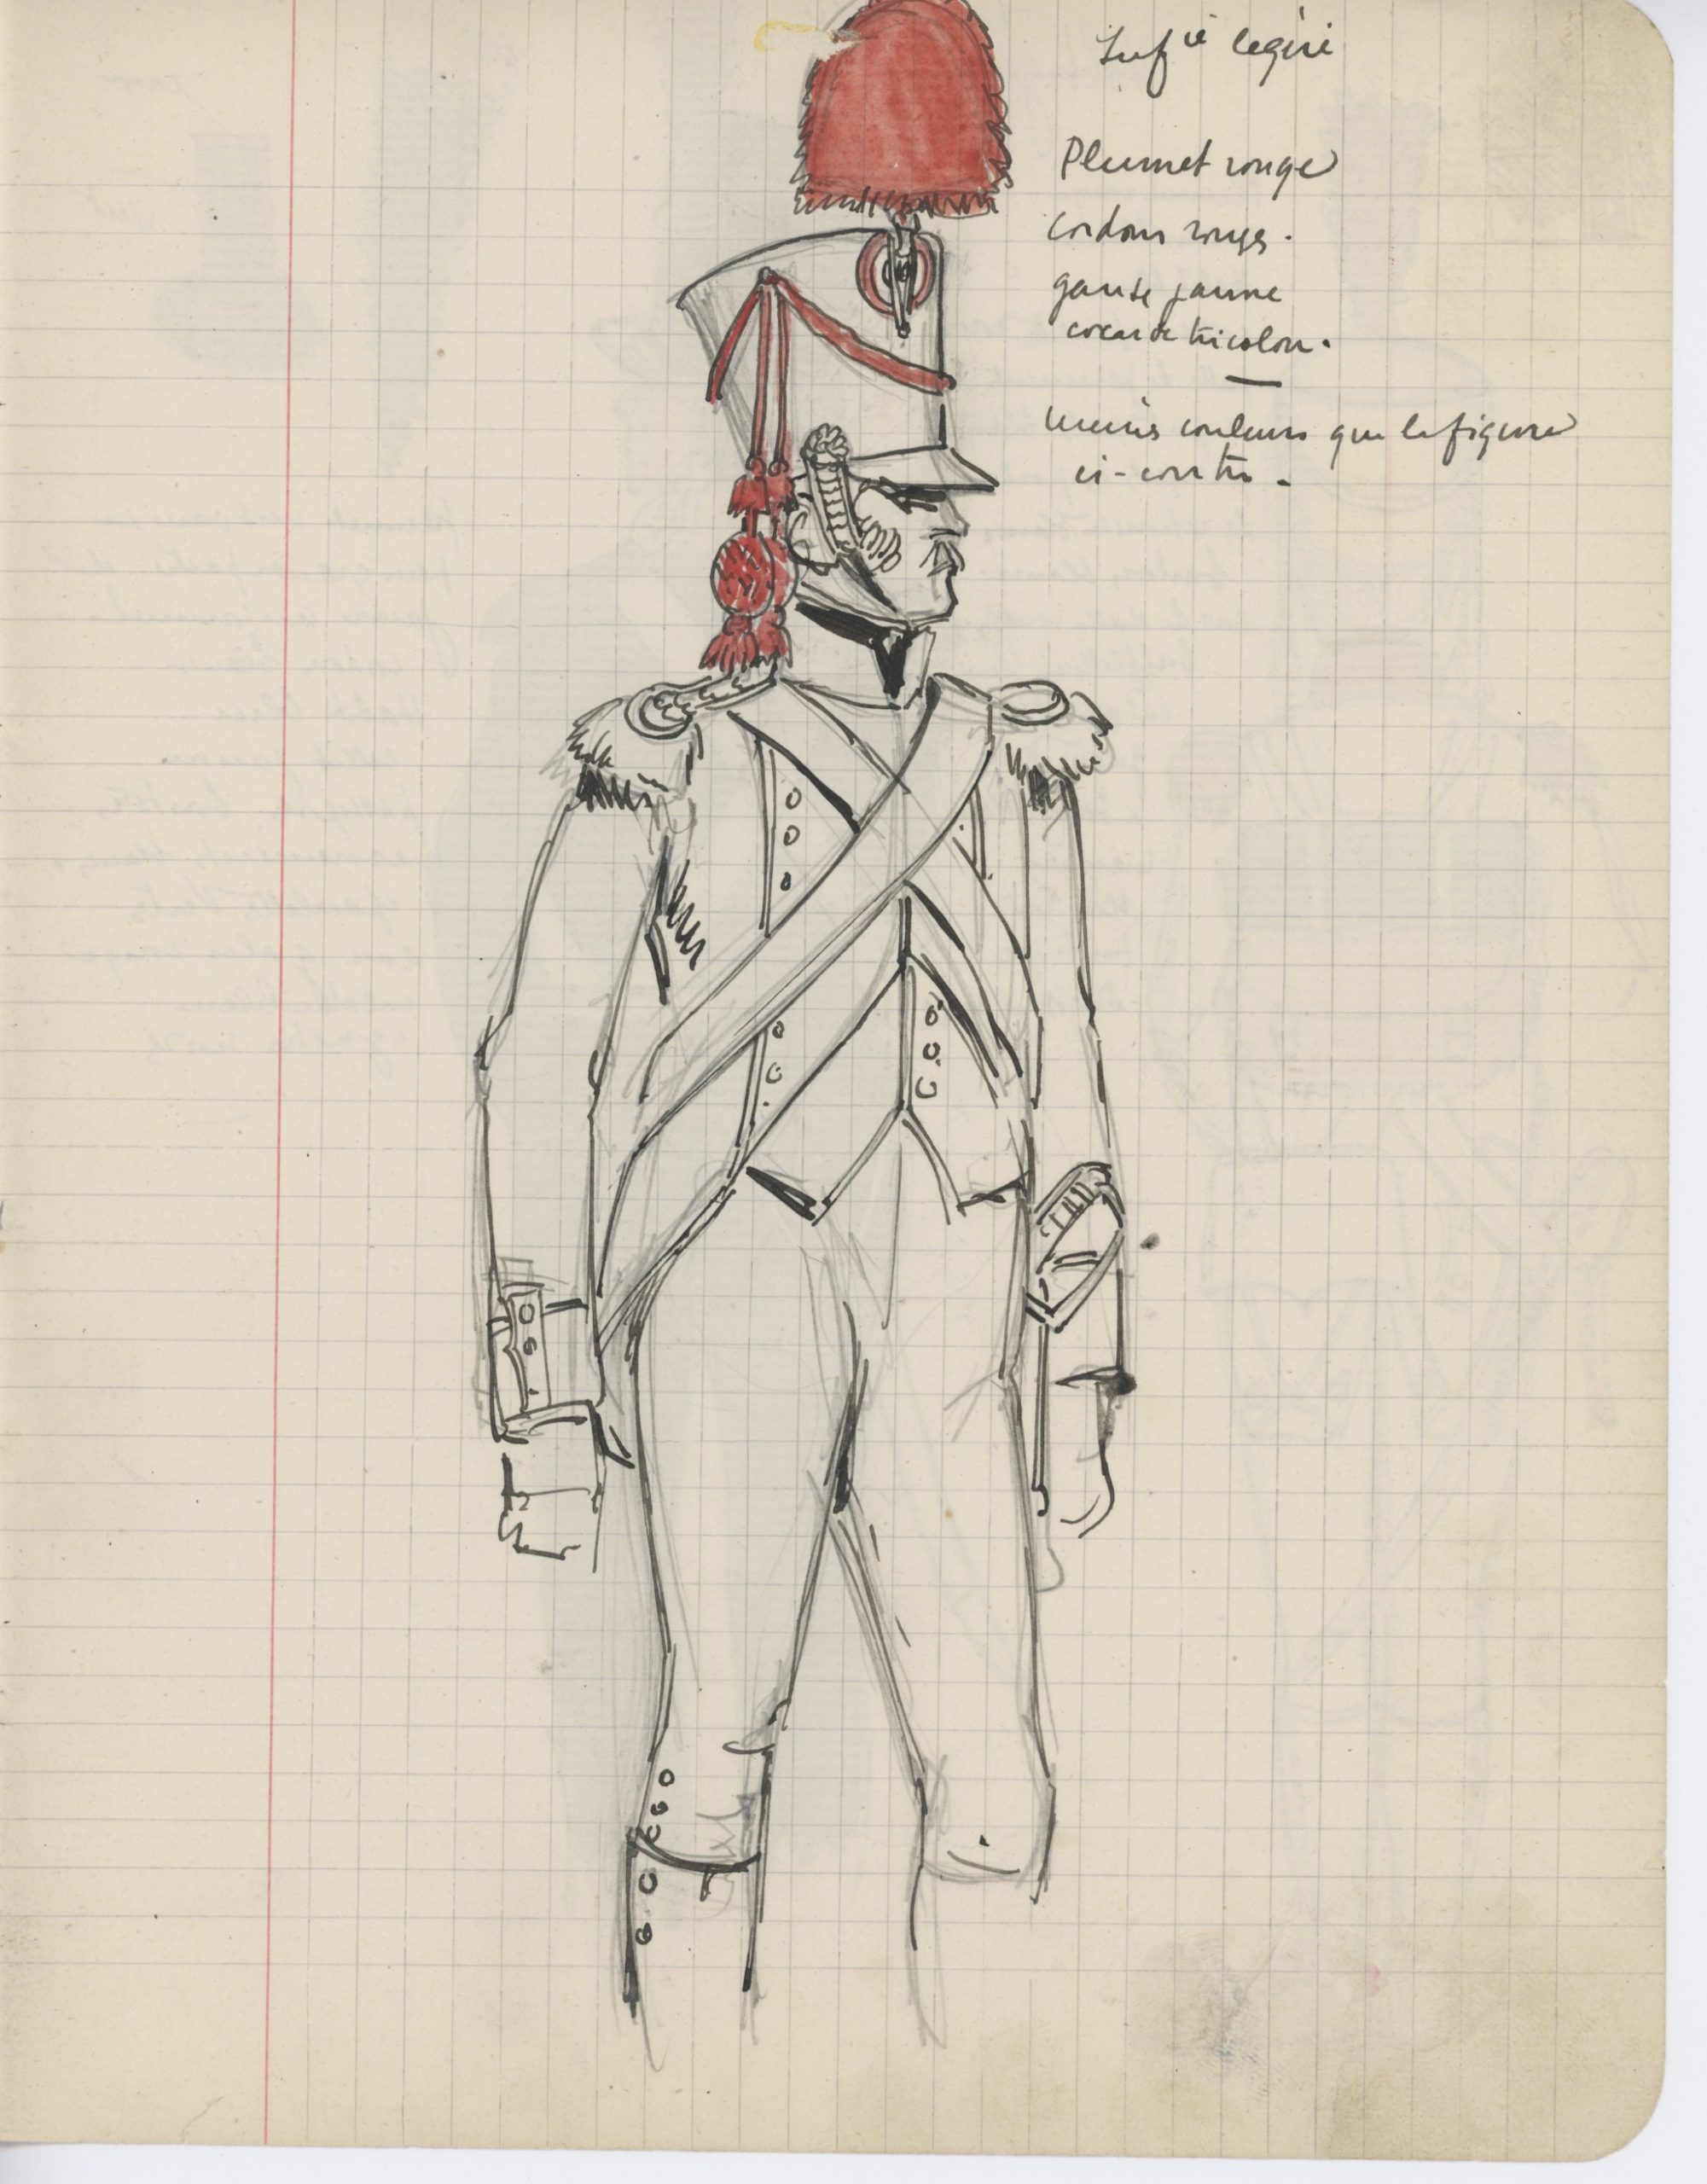 Infie legère
Plumet rouge
cordons rouges.
ganse jaune
cocarde tricolore.
mêmes couleurs que la figure
ci-contre.